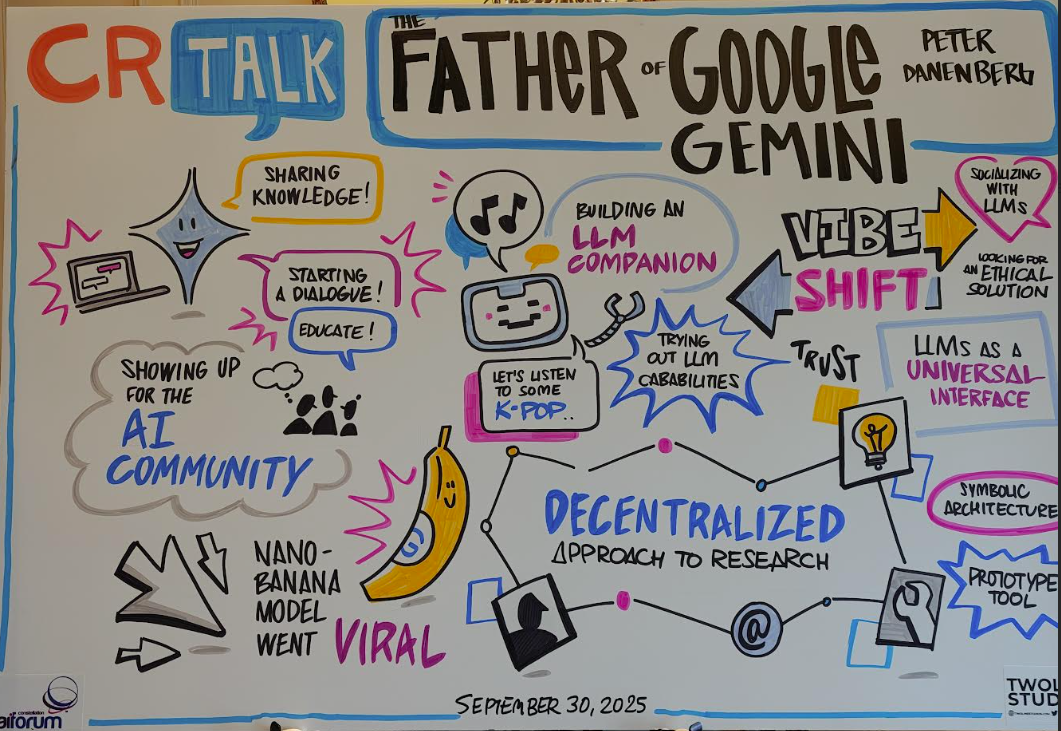 CR TALK
THE
FATHER OF GOOGLE
GEMINI
PETER
DANENBERG
SHARING
KNOWLEDGE!
STARTING
A DIALOGUE!
EDUCATE!
SHOWING UP
FOR THE
AI
COMMUNITY
NANO-
BANANA
MODEL
WENT VIRAL
G
BUILDING AN
LLM
COMPANION
LET'S LISTEN
TO SOME
K-POP..
TRYING
OUT LLM
CABABILITIES
VIBE
SHIFT
SOCIALIZING
WITH
LLMs
LOOKING FOR
AN ETHICAL
SOLUTION
TRUST
LLMs AS A
UNIVERSAL
INTERFACE
DECENTRALIZED
APPROACH TO RESEARCH
@
SYMBOLIC
ARCHITECTURE
PROTOTYPE
TOOL
SEPTEMBER 30, 2025
constellation
aiforum
TWOL
STUD